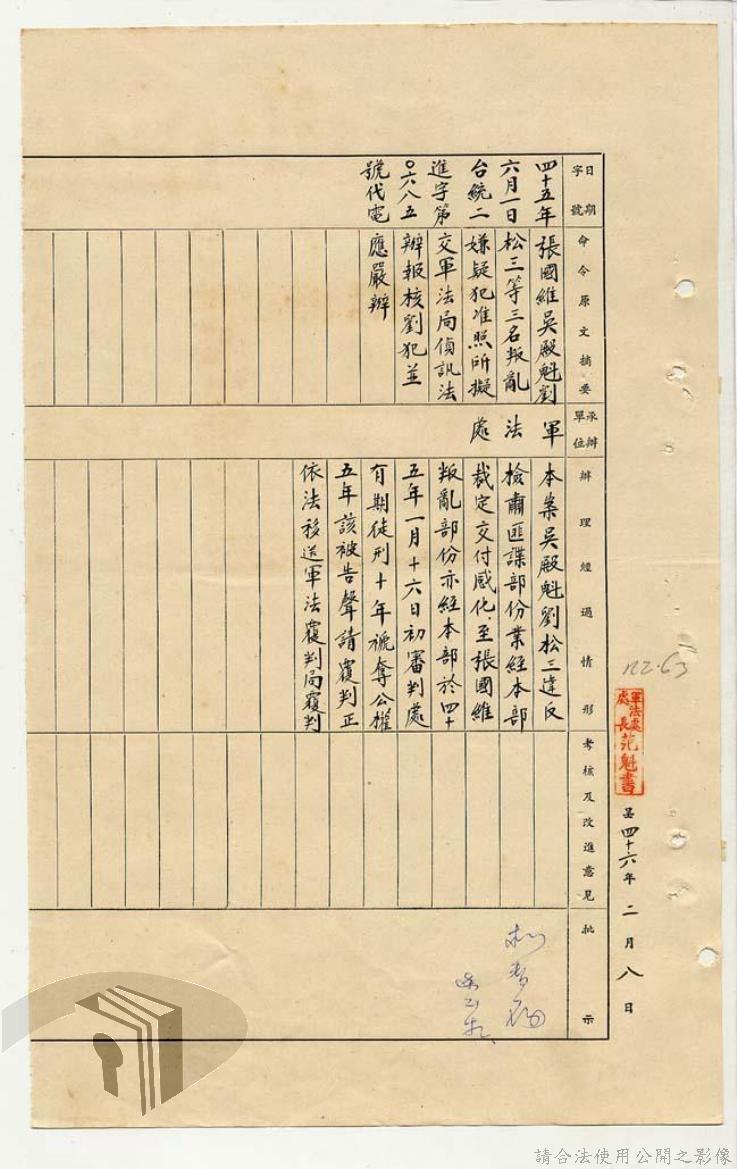 軍法處
處長 范魁書
呈 四十六年 二月 八日
日期
字號
四十五年
六月一日
台統二
進字第
〇六八五
號代電
命令原文摘要
張國維吳殿魁劉
松三等三名叛亂
嫌疑犯准照所擬
交軍法局偵訊法
辦報核劉犯並
應嚴辦
承辦
單位
軍法處
辦理經過情形
本案吳殿魁劉松三違反
檢肅匪諜部份業經本部
裁定交付感化.至張國維
叛亂部份亦經本部於四十
五年一月十六日初審判處
有期徒刑十年褫奪公權
五年該被告聲請覆判正
依法移送軍法覆判局覆判
考核及改進意見
批示
請合法使用公開之影像